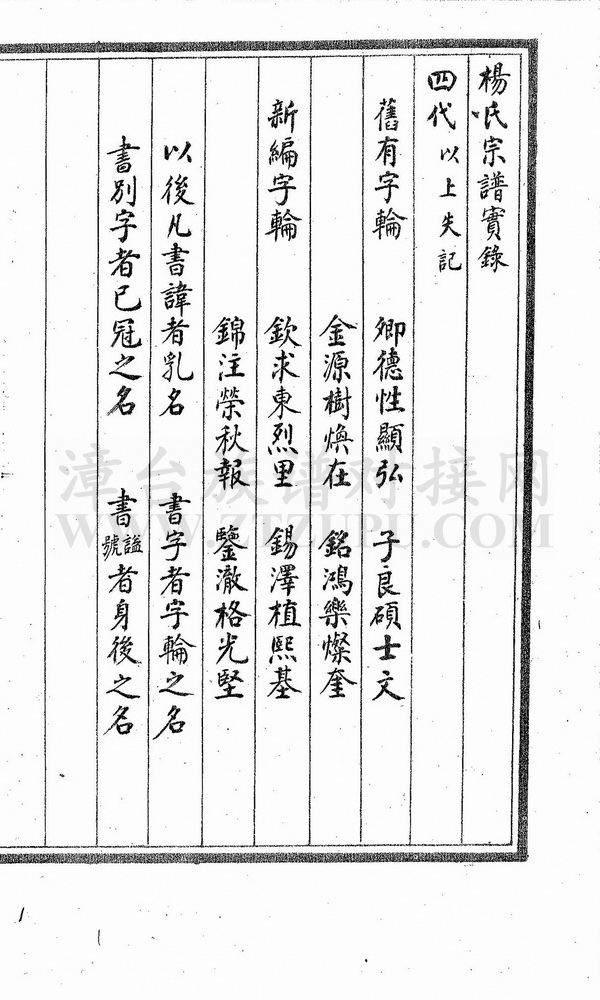 楊氏宗譜實錄
四代 以上失記
舊有字輪 卿德性顯弘 子良碩士文
金源樹煥在 銘鴻樂燦奎
新編字輪 欽求東烈里 錫澤植熙基
錦注榮秋報 鑒澈格光堅
以後凡書諱者乳名 書字者字輪之名
書別字者已冠之名 書謚號者身後之名
漳台族谱对接网
WWW.ZTZUPU.COM
1